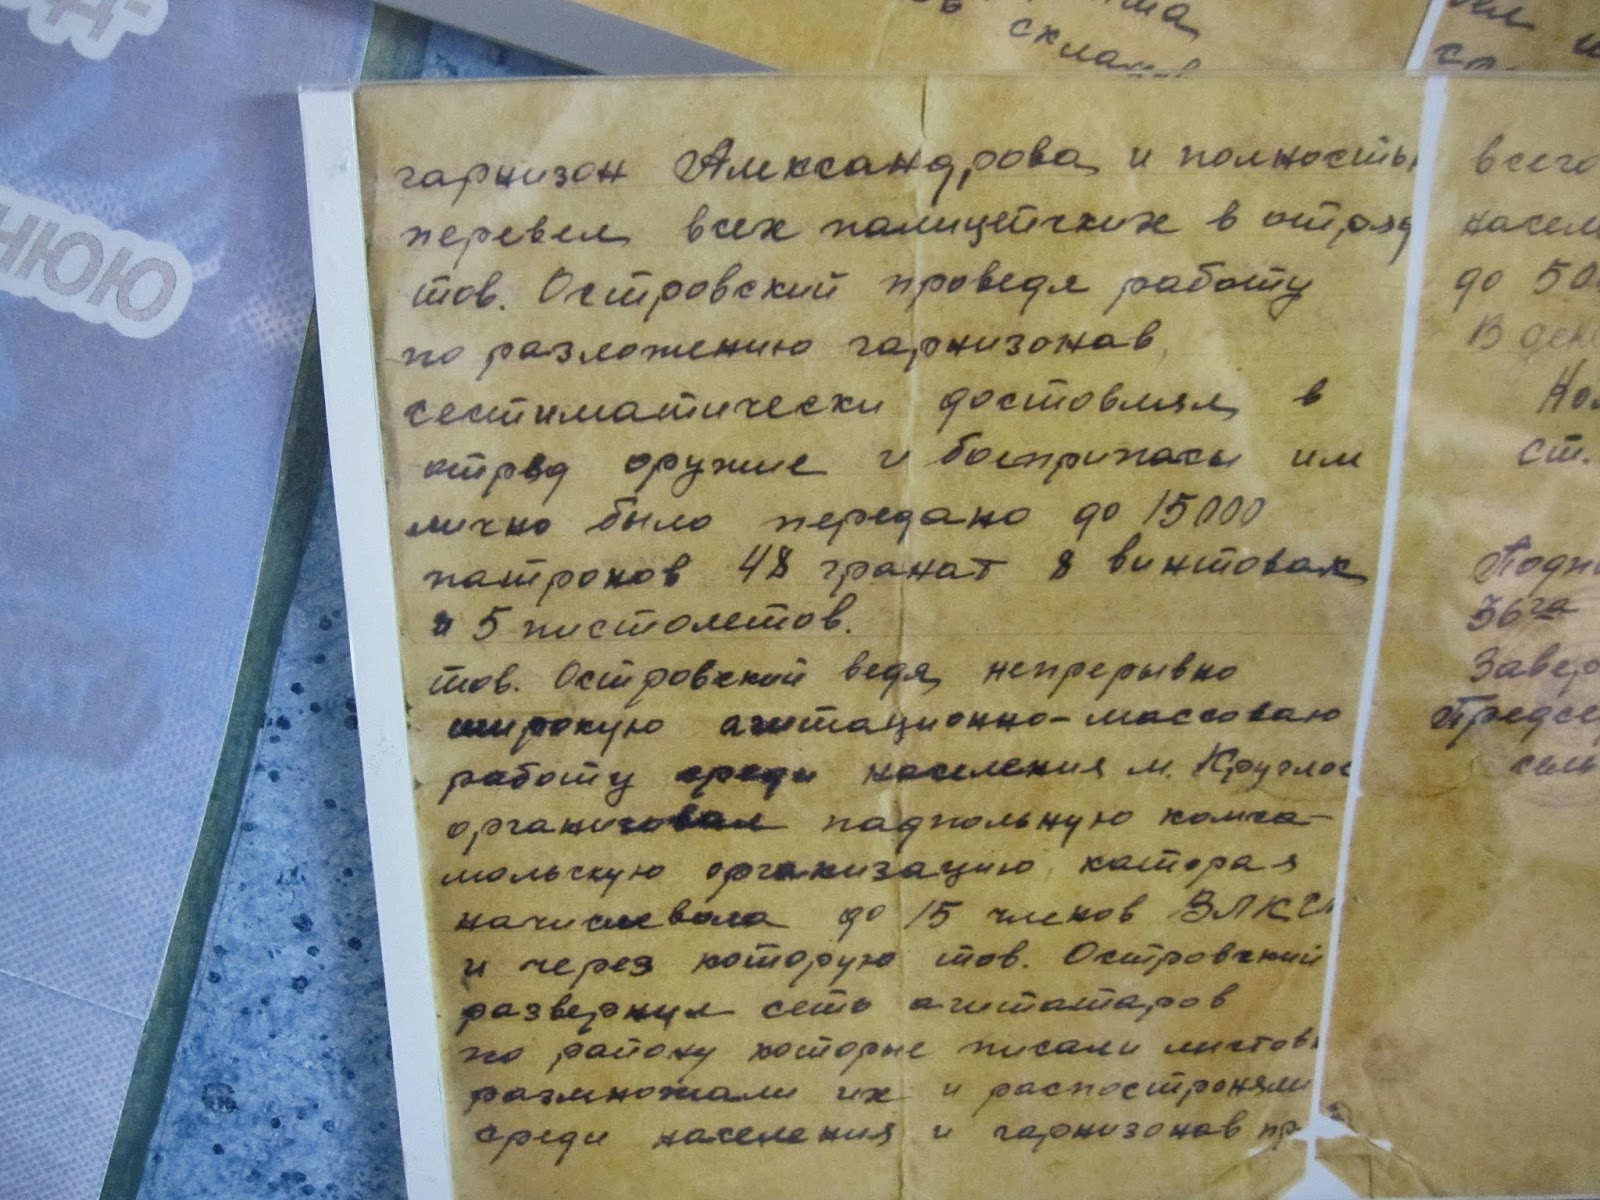 нюю
скла
гарнизон Александрова и полностью
перевел всех палицейских в отряд
тов. Островский проведя работу
по разложению гарнизонав
сестиматически достовлял в
отряд оружие и боеприпасы им
лично было передано до 15000
патронов 48 гранат 8 винтовак
и 5 пистолетов.
тов. Островский ведя непрерывно
широкую агитационно-массоваю
работу среди населения м. Круглое
организовал падпольную комса-
мольскую организацию, катор а я
начислевала до 15 членов ВЛКСМ
и через которую тов. Островский
развернул сеть агитатаров
по району которые писали листов
размножали их и распостроняли
среди населения и гарнизонав пр
всего
насел
до 50
В дек
Ком
ст.
Подп
36га
Завер
Предсе
сель